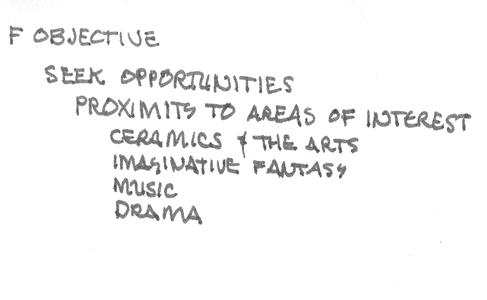 F OBJECTIVE
SEEK OPPORTUNITIES
PROXIMITY TO AREAS OF INTEREST
CERAMICS & THE ARTS
IMAGINATIVE FANTASY
MUSIC
DRAMA